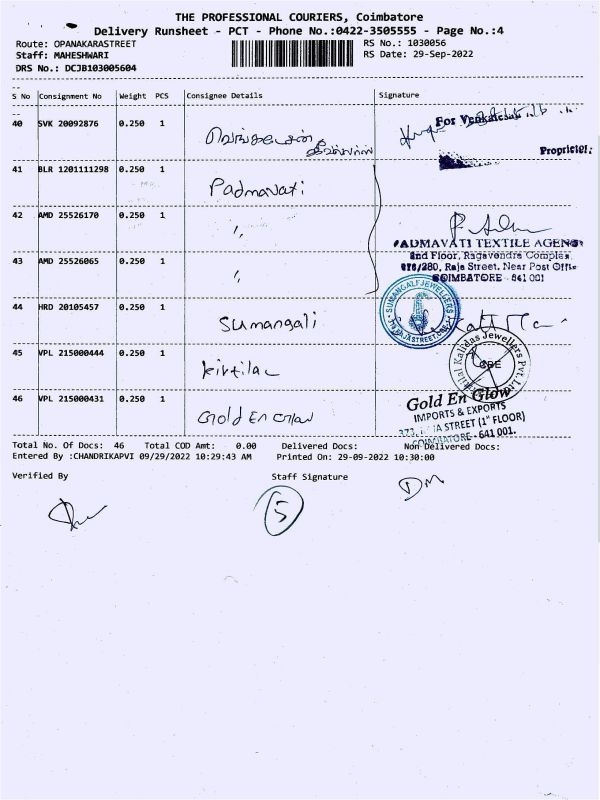 THE PROFESSIONAL COURIERS, Coimbatore
Delivery Runsheet - PCT - Phone No.:0422-3505555 - Page No.:4
Route: OPANAKARASTREET
RS No.: 1030056
Staff: MAHESHWARI
RS Date: 29-Sep-2022
DRS No.: DCJB103005604
S No Consignment No Weight PCS Consignee Details Signature
40 SVK 20092876 0.250 1
For
Proprietor.
41 BLR 1201111298 0.250 1 Padmavati
42 AMD 25526170 0.250 1 ,,
PADMAVATI TEXTILE AGENCY
2nd Floor, Ragavendra Complex,
Raja Street, Near Post Office
COIMBATORE - 641 001
43 AMD 25526065 0.250 1 ,,
SUMANGALI JEWELLERS
44 HRD 20105457 0.250 1 Sumangali
Kalidas Jewellers Pvt. Ltd
CBE
45 VPL 215000444 0.250 1 kirtilal
46 VPL 215000431 0.250 1 Gold En Glow
Gold En Glow
IMPORTS & EXPORTS
STREET (1st FLOOR)
COIMBATORE - 641 001.
Total No. Of Docs: 46 Total COD Amt: 0.00 Delivered Docs: Non Delivered Docs:
Entered By :CHANDRIKAPVI 09/29/2022 10:29:43 AM Printed On: 29-09-2022 10:30:00
Verified By Staff Signature
5